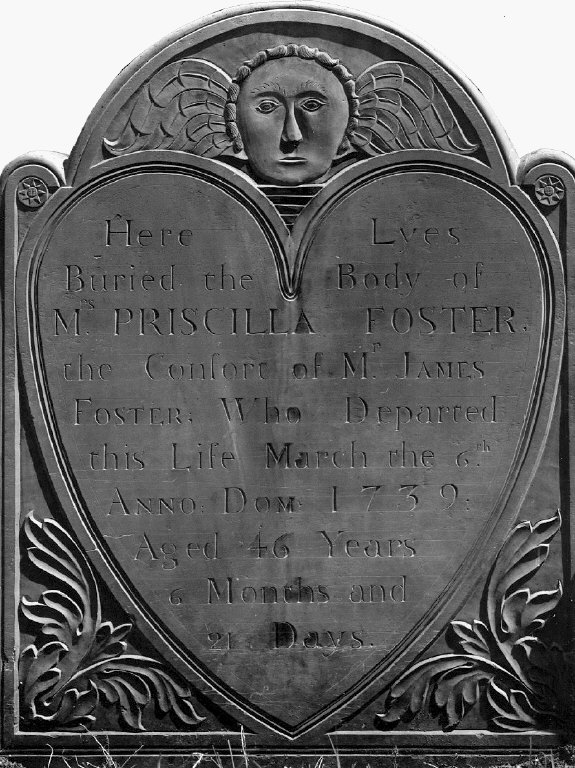 Here Lyes
Buried the Body of
Mrs. PRISCILLA FOSTER,
the Conſort of Mr. JAMES
FOSTER; Who Departed
this Life March the 6.th
ANNO: DOM: 1739:
Aged 46 Years
6 Months and
21 Days.